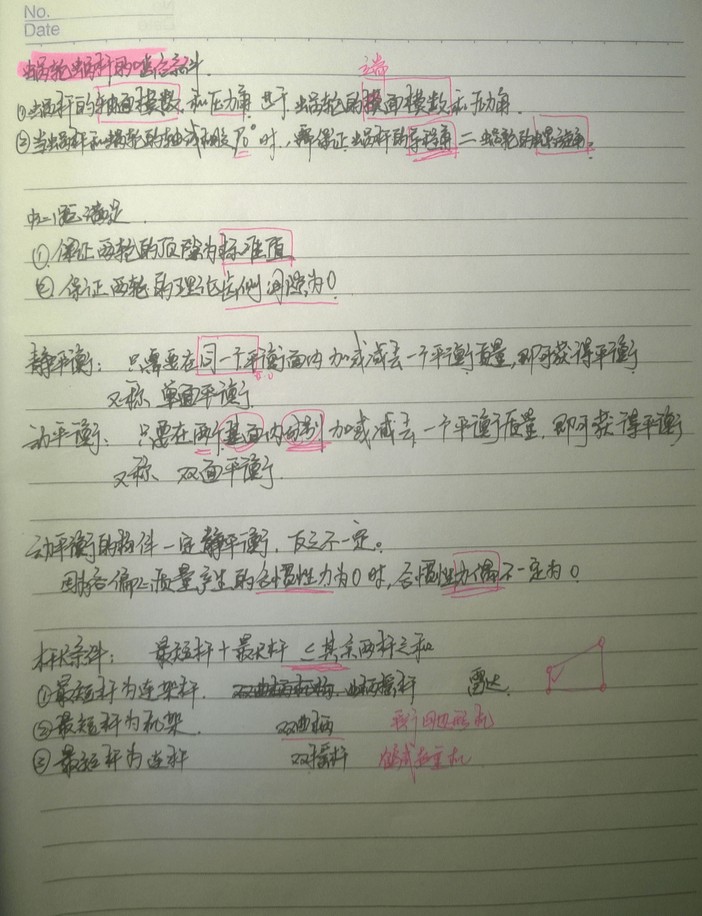 No.
Date
蜗轮蜗杆的啮合条件.
主端
①蜗杆的轴面模数和压力角 等于 蜗轮的端面模数和压力角.
②当蜗杆和蜗轮的轴线相交90°时,需保证蜗杆的导程角=蜗轮的螺旋角.
中心距满足
①保证两轮的顶隙为标准值
②保证两轮的理论齿侧间隙为0.
静平衡: 只需要在同一个平衡面内加或减去一个平衡质量,即可获得平衡
又称 单面平衡
动平衡: 只要在两个基面内分别加或减去一个平衡质量,即可获得平衡
又称 双面平衡.
动平衡的构件一定静平衡,反之不一定。
因为各偏心质量产生的合惯性力为0时,合惯性力偶不一定为0
杆长条件: 最短杆+最长杆≤其余两杆之和
①最短杆为连架杆. 双曲柄机构 曲柄摇杆 雷达.
②最短杆为机架. 双曲柄
③最短杆为连杆 双摇杆 起重机